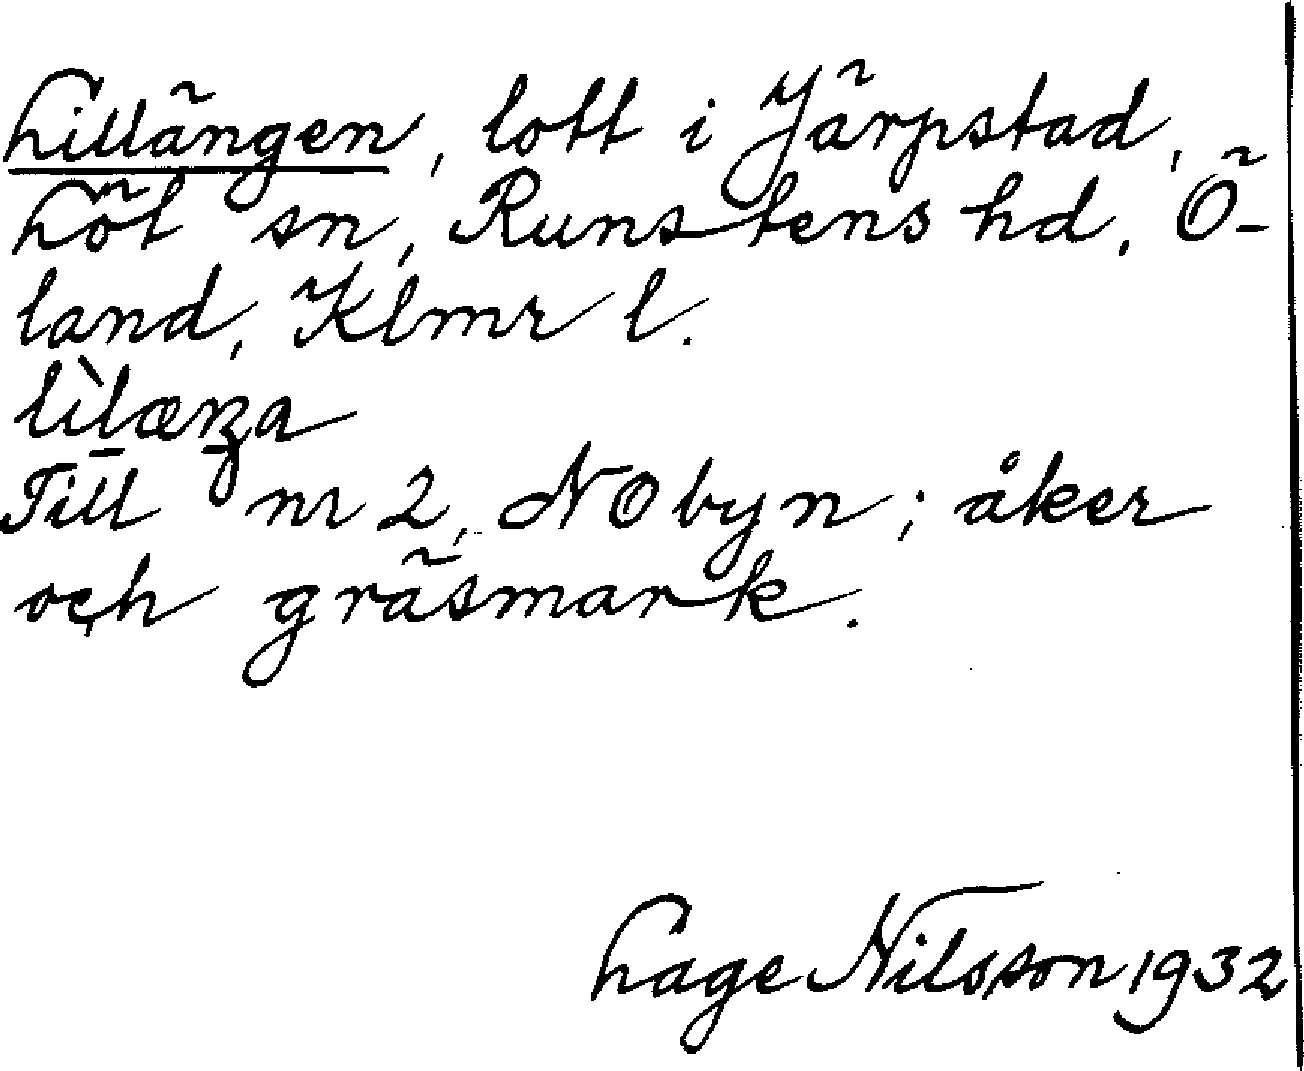 Lillängen, lott i Järpstad,
Löt sn, Runstens hd, Ö-
land, Klmr l.
lìlæŋa
Till nr 2, NO byn; åker
och gräsmark.
Lage Nilsson 1932